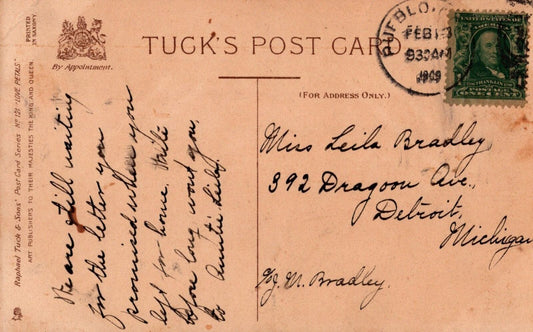 PRINTED
IN SAXONY
By Appointment.
TUCK'S POST CARD
(FOR ADDRESS ONLY.)
PUEBLO,
FEB 13
930AM
1909
UNITED STATES OF
FRANKLIN
POSTAGE
ONE CENT
Raphael Tuck & Sons' Post Card Series No 121 "LOVE PETALS"
ART PUBLISHERS TO THEIR MAJESTIES THE KING AND QUEEN
We are still waiting
for the letter you
promised when you
left for home. Write
before long won't you,
to Auntie Lily.
Miss Leila Bradley
392 Dragoon Ave.,
Detroit,
Michigan
c/o J. M. Bradley.